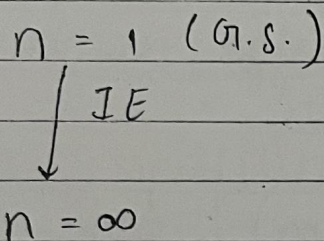 n = 1 (G.S.)
IE
n = ∞